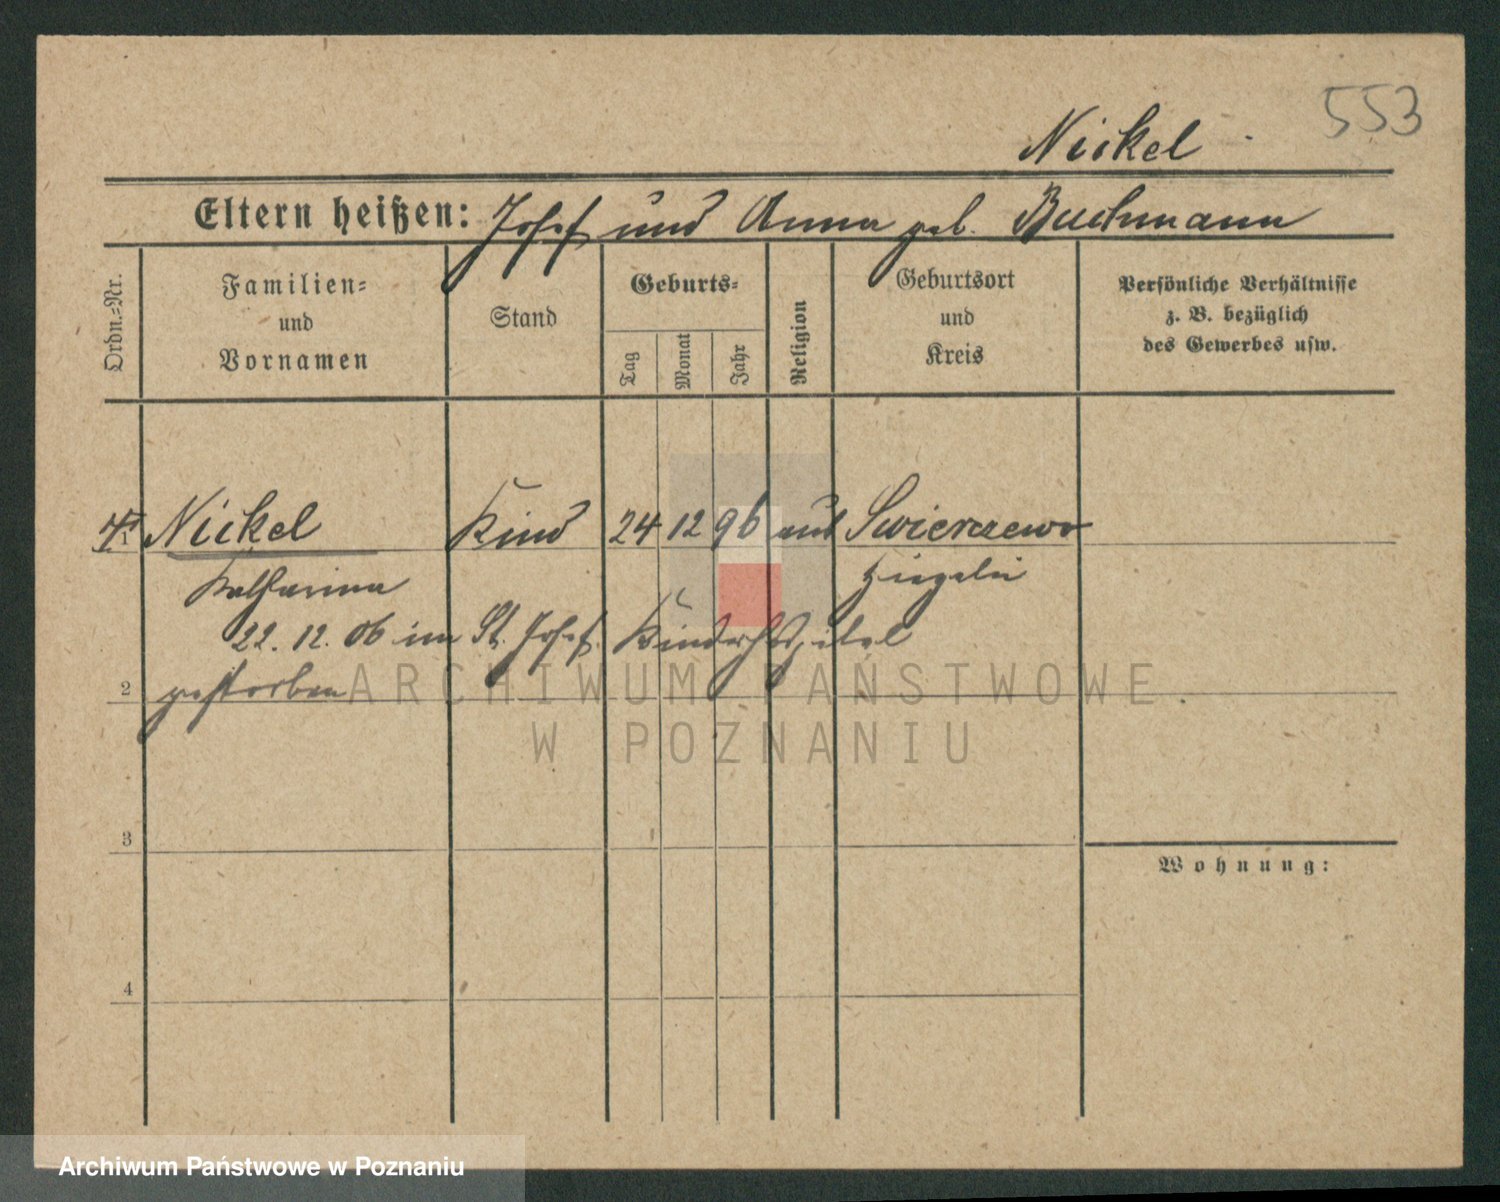 553
Nickel
Eltern heißen: Josef und Anna geb. Buchmann
Ordn.=Nr.
Familien=
und
Vornamen
Stand
Geburts=
Tag
Monat
Jahr
Religion
Geburtsort
und
Kreis
Persönliche Verhältnisse
z. B. bezüglich
des Gewerbes usw.
1 Nickel Kind 24 12 96 aus Swierczewo
Katharina Ziegelei
22. 12. 06 im St. Josef Kinderhospital
2 gestorben
3
4
Wohnung:
ARCHIWUM PAŃSTWOWE
W POZNANIU
Archiwum Państwowe w Poznaniu